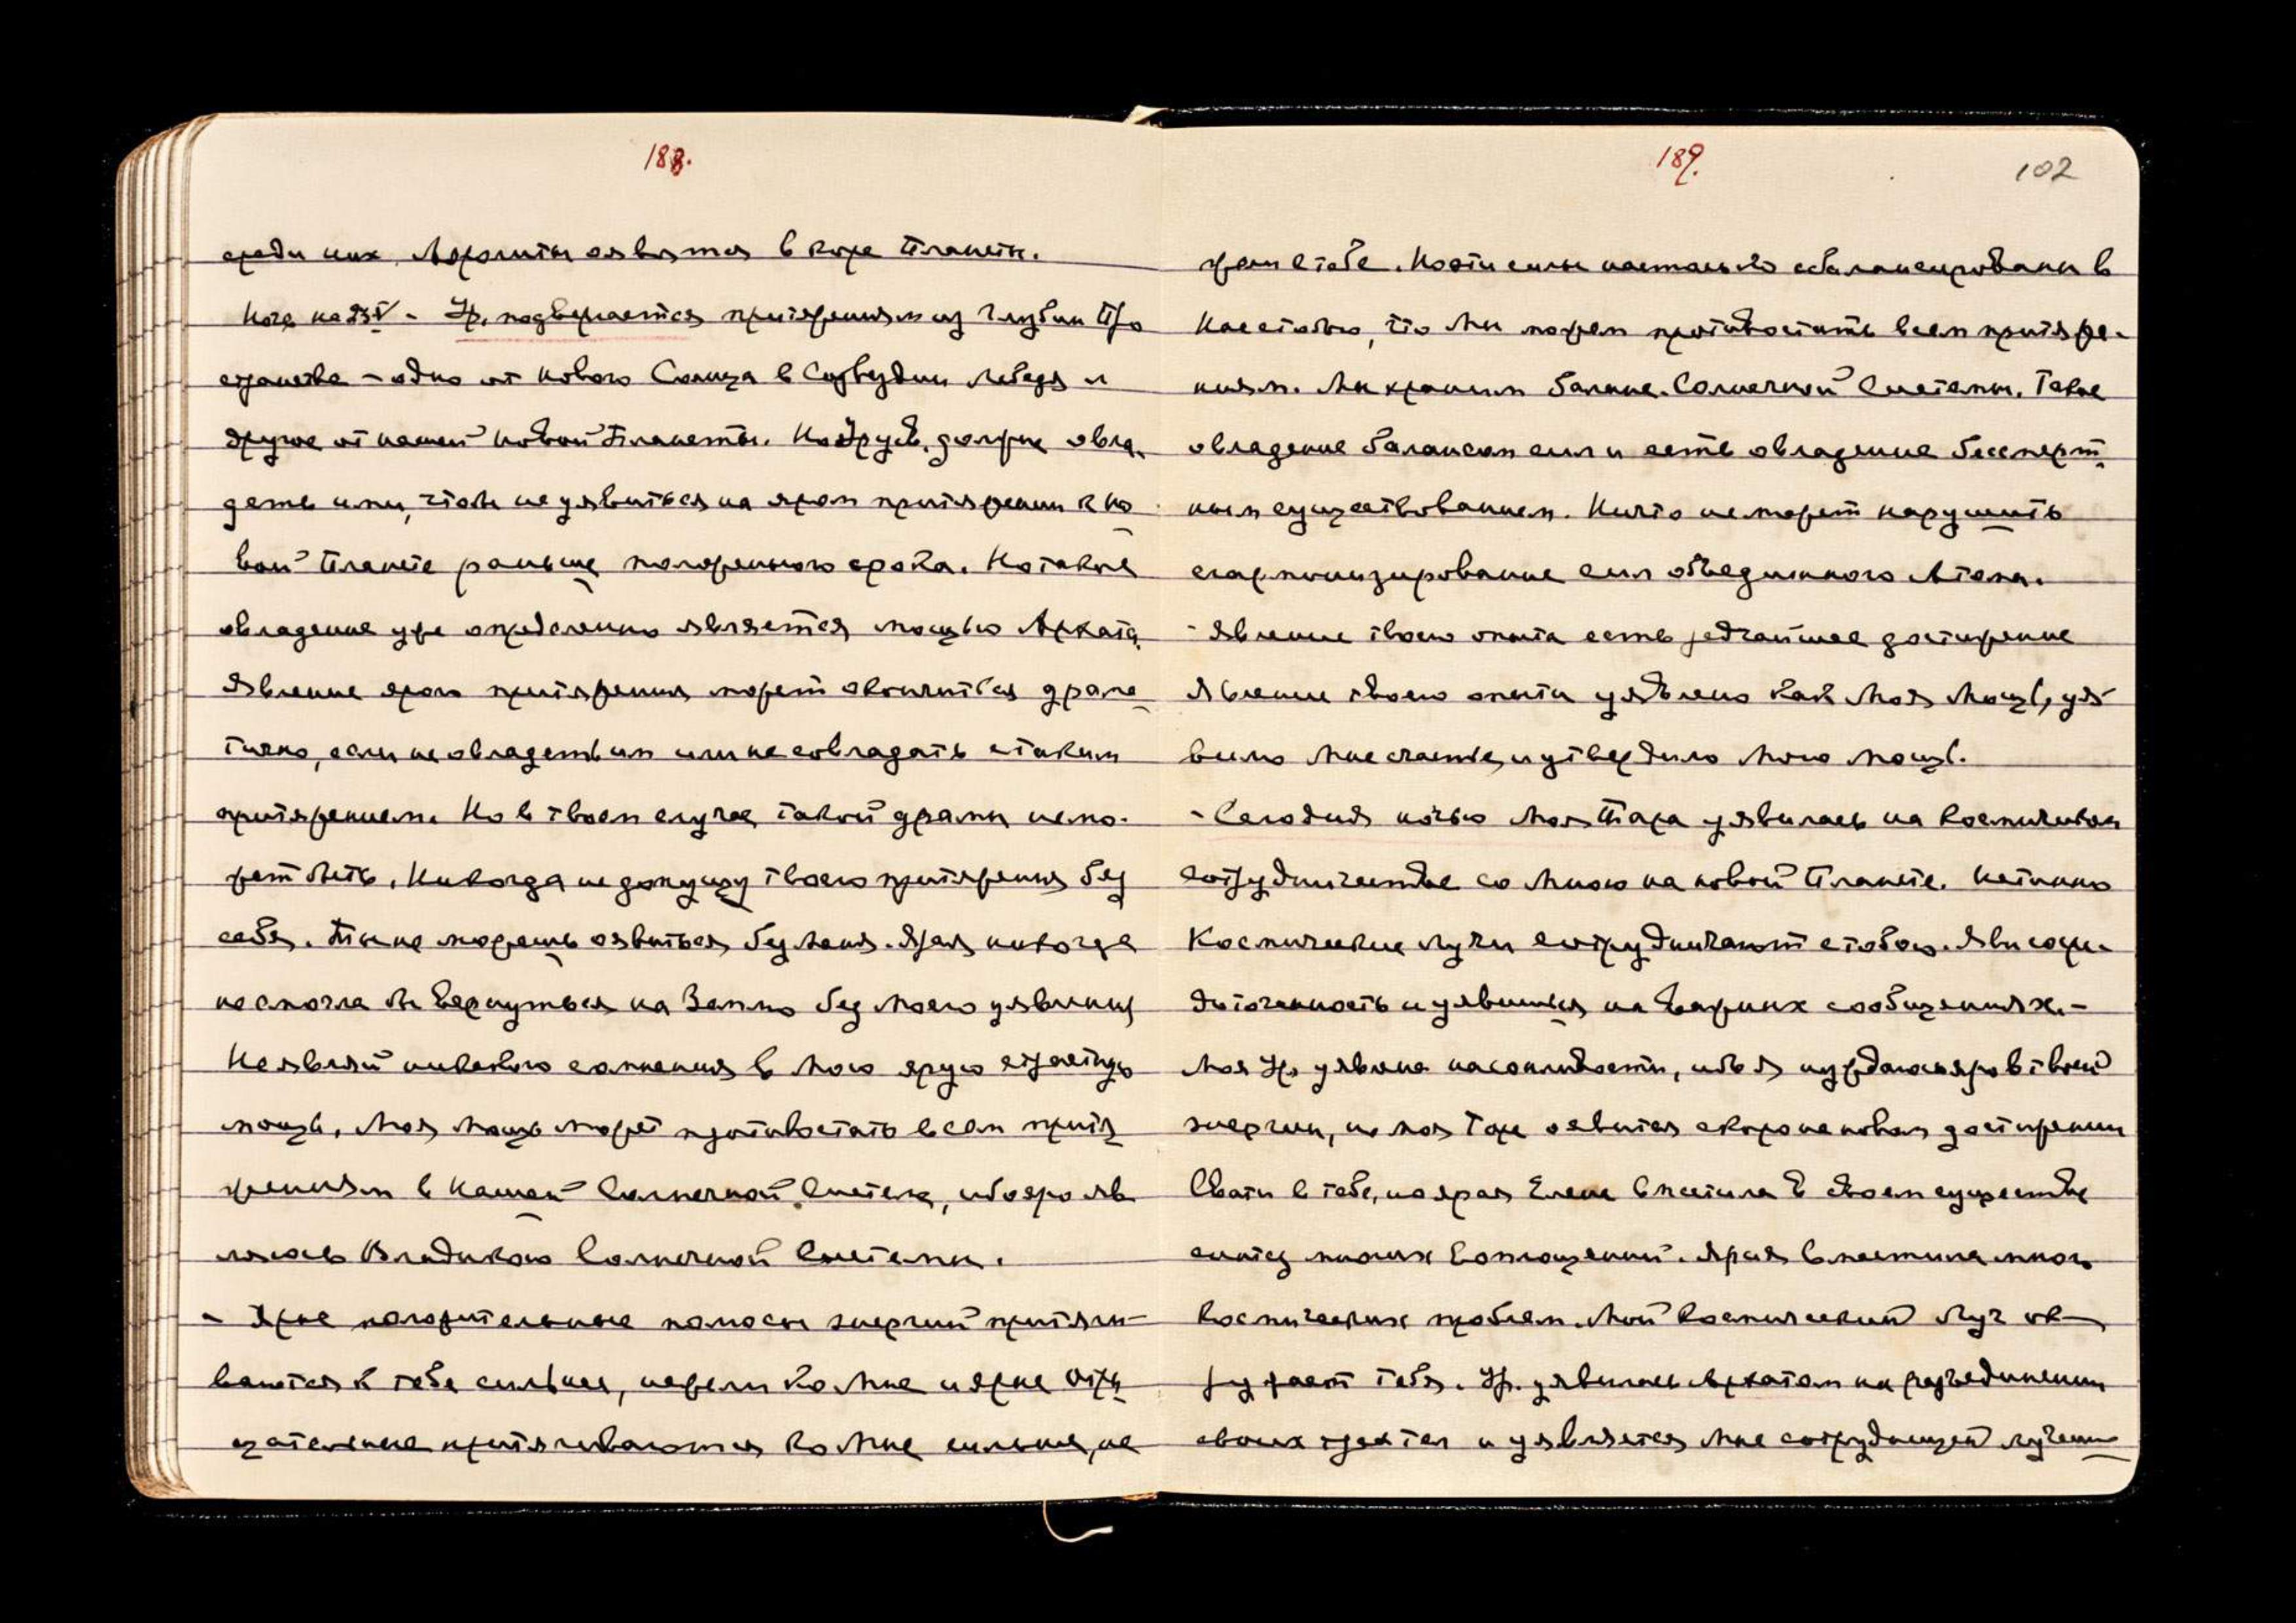 188.
среди них. Аэролиты оявятся в коре Планеты.
Ночь на 23 V - Ур. подвергается притяжениям из глубин Про
странства - одно от нового Солнца в Созвездии Лебедя и
другое от нашей новой Планеты. Но Друг должен овла
деть ими, чтобы не уявиться на яром притяжении к но
вой Планете раньше положенного срока. Но такое
овладение уже определенно является мощью Архата.
Явление ярого притяжения может окончиться драма
тично, если не овладеть им или не совладать с таким
притяжением. Но в твоем случае такой драмы не мо-
жет быть. Никогда не допущу твоего притяжения без
себя. Ты не можешь оявиться без Меня. Ярая никогда
не смогла бы вернуться на Землю без Моего уявления
Не являй никакого сомнения в Мою ярую страстную
мощь. Моя Мощь может противостать всем притя
жениям в Нашей Солнечной Системе, ибо яро яв
ляюсь Владыкою Солнечной Системы.
- Ярые положительные полюсы энергий притяги-
ваются к тебе сильнее, нежели ко Мне и ярые Отри
цательные притягиваются ко Мне сильнее, не
189.
102
жели к тебе. Но эти силы настолько сбалансированы в
Нас с тобою, что Мы можем противостать всем притяже-
ниям. Мы храним баланс Солнечной Системы. Такое
овладение балансом сил и есть овладение бессмерт
ным существованием. Ничто не может нарушить
сгармонизирование сил объединенного Атома.
- Явление твоего опыта есть редчайшее достижение
Явление твоего опыта уявлено как Моя Мощь, уя
вило Мне счастье, и утвердило Мою мощь.
- Сегодня ночью Моя Тара уявилась на космическом
сотрудничестве со Мною на новой Планете. Истинно
Космические лучи сотрудничают с тобою. Яви сосре-
доточенность и уявишься на важных сообщениях. -
Моя Ур. уявлена на солидности, ибо Я нуждаюсь яро в твоей
энергии, но моя Тара оявится скоро на новом достижении
Свати в тебе, но ярая Елена вместила в своем существе
синтез многих воплощений. Ярая вместила много
космических проблем. Мой Космический Луч ок-
ружает тебя. Ур. уявилась Архатом на разъединении
своих трех тел и уявляется Мне сотрудницей лучшей